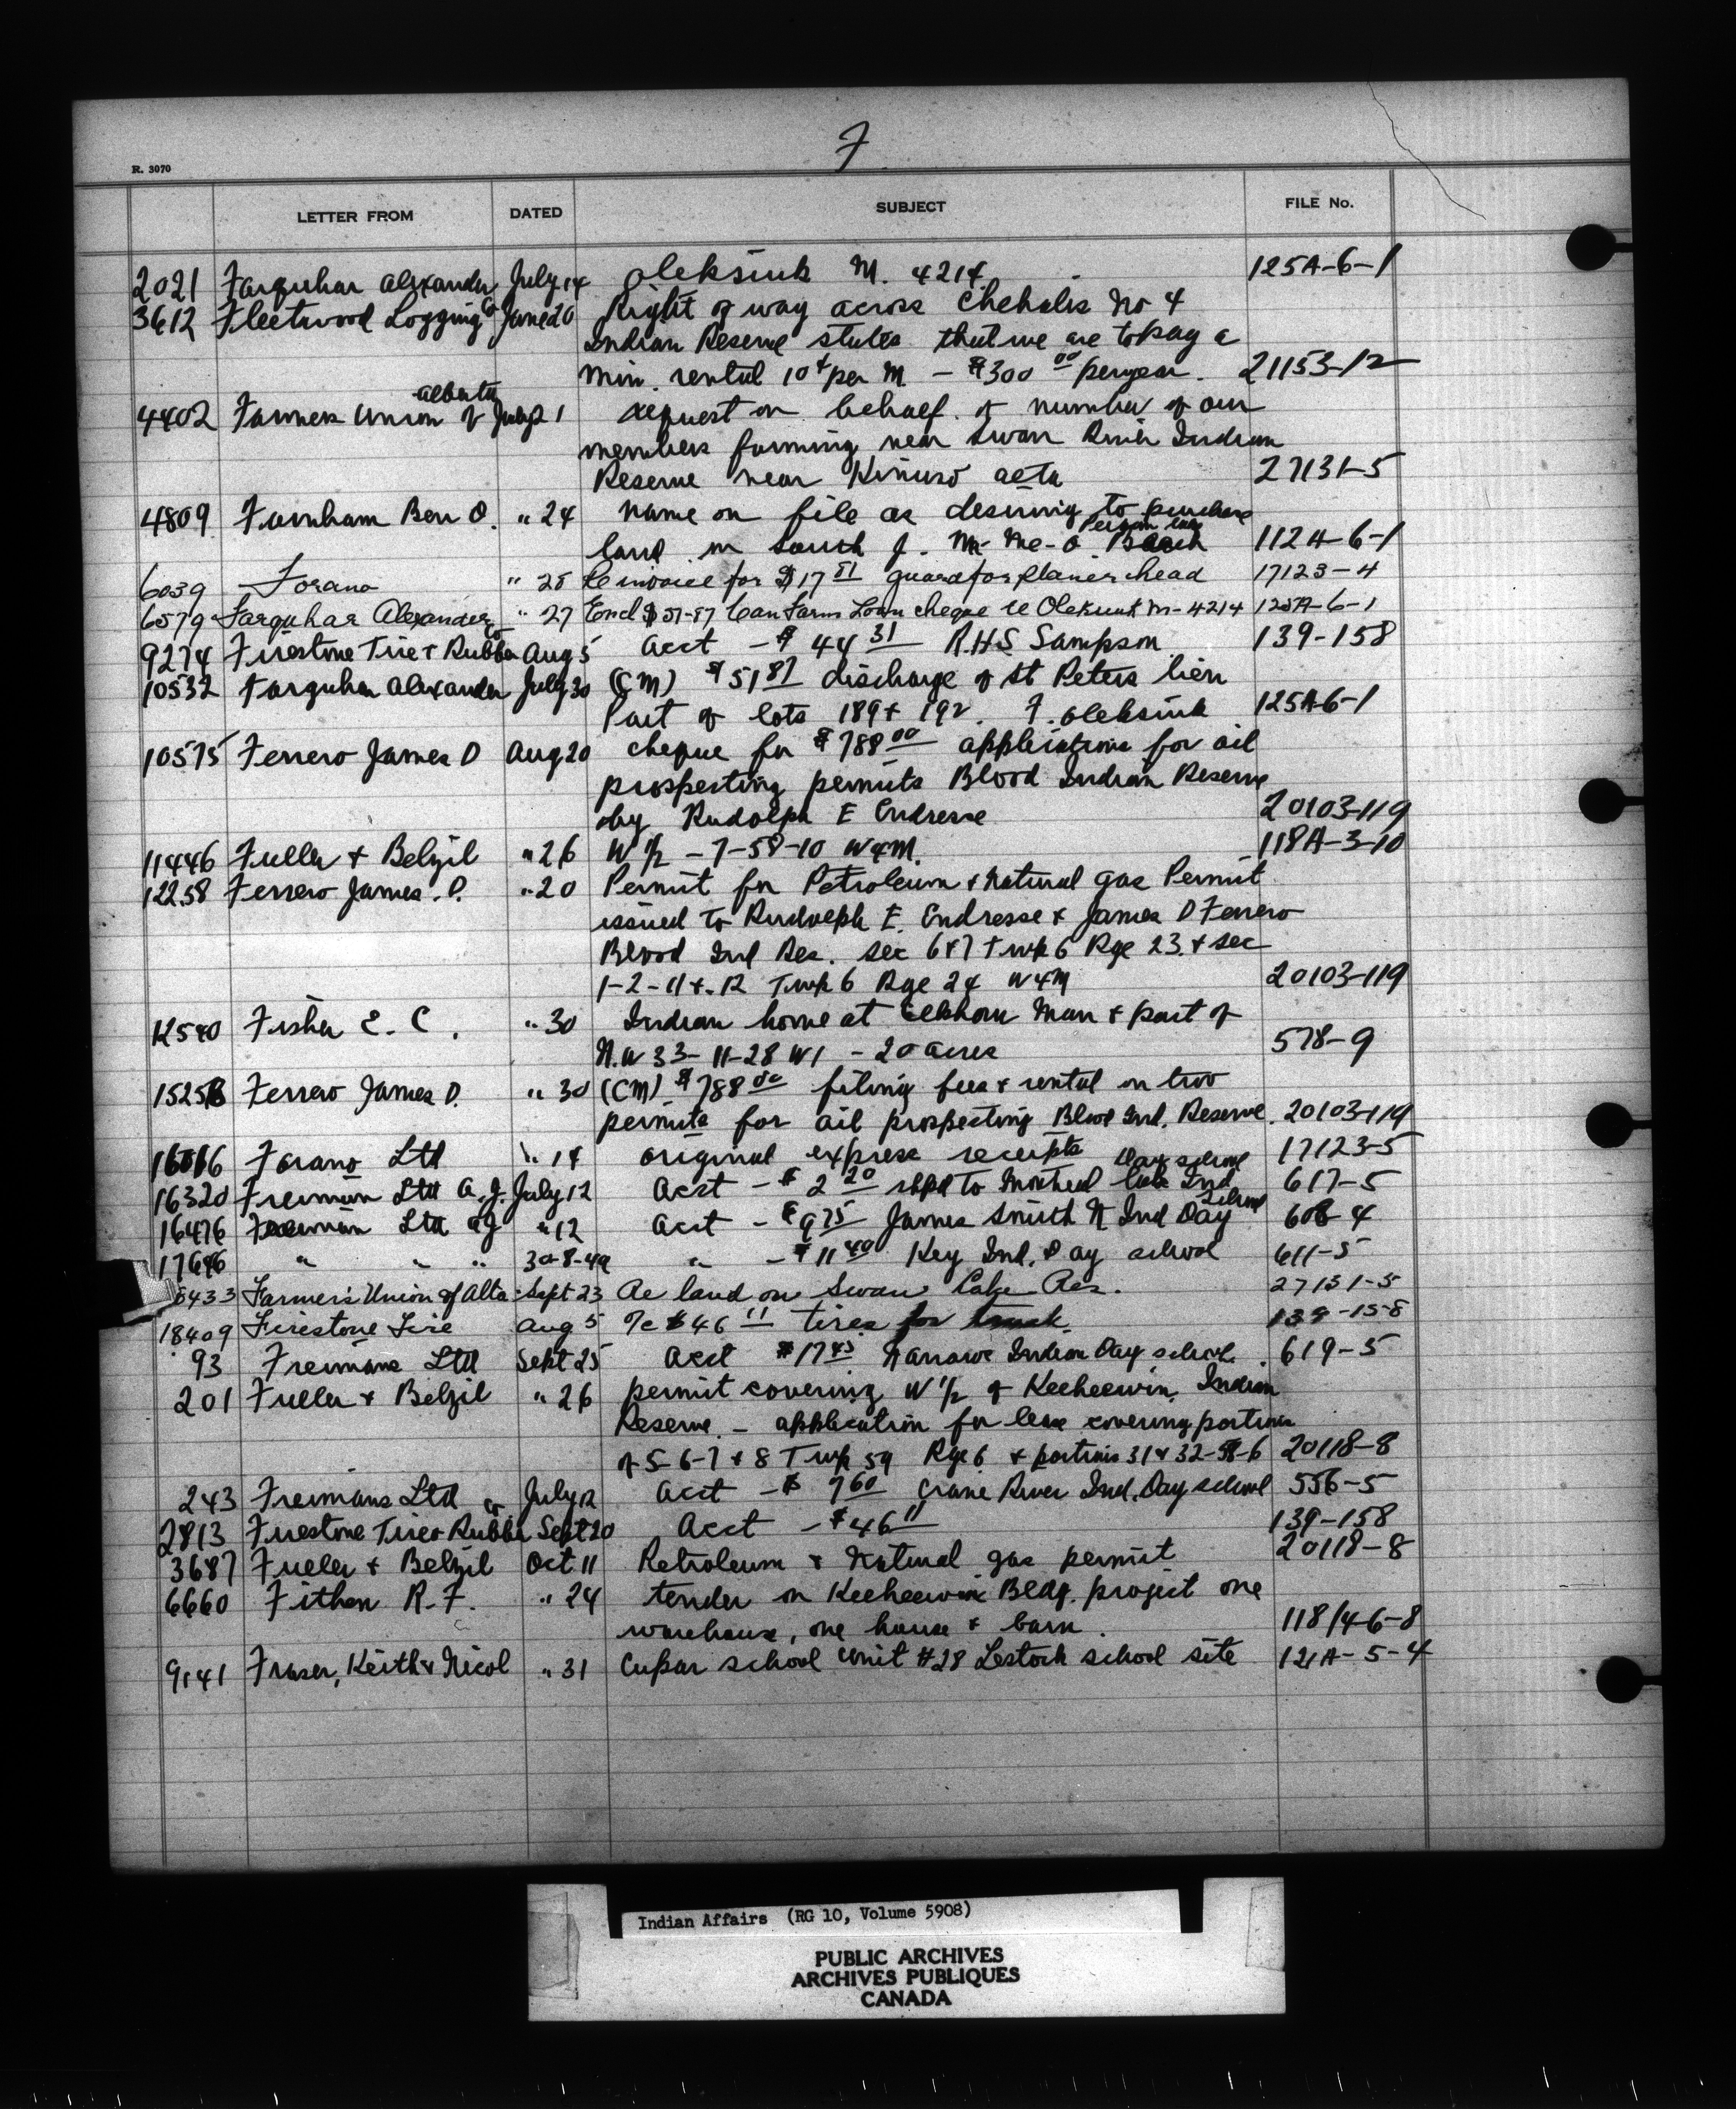 F
R. 3070
LETTER FROM DATED SUBJECT FILE No.
2021 Farquhar Alexander July 14 Oleksiuk M. 4214 125A-6-1
3612 Fleetwood Logging Co June 20 Right of way across Chehalis No 4
Indian Reserve states that we are to pay a
min. rental 10¢ per M - $300 00 per year. 21153-12
Alberta
4402 Farmers Union of July 21 request on behalf of number of our
members farming near Swan River Indian
Reserve near Kinuso Alta 27131-5
4809 Farnham Ben O. " 24 name on file as desiring to purchase
land in South 112A-6-1
6039 Forano " 28 Re invoice for $17 51 guard for planer head 17123-4
6579 Farquhar Alexander " 27 Encl $51-87 Can Farm Loan cheque re Oleksiuk M-4214 125A-6-1
9274 Firestone Tire & Rubber Co Aug 5 Acct - $44 31 R.H.S Sampson 139-158
10532 Farquhar Alexander July 30 (CM) $51 87 discharge of St Peters lien
Part of lots 189 & 192. F. Oleksiuk 125A-6-1
10575 Ferrero James D Aug 20 cheque for $788 00 applications for oil
prospecting permits Blood Indian Reserve
by Rudolph E Endresse 20103-119
11446 Fuller & Belzil " 26 W 1/2 - 7-58-10 W4M. 118A-3-10
12258 Ferrero James. D. " 20 Permit for Petroleum & Natural gas Permit
issued to Rudolph E. Endresse & James D Ferrero
Blood Ind Res. sec 6 & 7 Twp 6 Rge 23. & sec
1-2-11 & 12 Twp 6 Rge 24 W4M 20103-119
12540 Fisher E. C. " 30 Indian home at Elkhorn Man & part of
N.W 33-11-28 W1 - 20 acres 578-9
Ferrero James D. " 30 (CM) $788 00 filing fees & rental on two
permits for oil prospecting Blood Ind. Reserve. 20103-119
Forano Ltd " 14 original express receipts 17123-5
Day school
16320 Freiman Ltd A.J. July 12 Acct - $2 20 shpd to Montreal Lake Ind 617-5
School
16476 Freiman Ltd AJ " 12 Acct - $9 75 James Smith N Ind Day 608-4
17696 " " " 30-8-49 " - $11 40 Key Ind. Day school 611-5
8433 Farmer's Union of Alta Sept 23 Re land on Swan Lake Res. 27131-5
18409 Firestone Tire Aug 5 $46 11 tires for truck 139-158
93 Freimans Ltd Sept 25 Acct $17 45 Indian Day school. 619-5
201 Fuller & Belzil " 26 permit covering W 1/2 of Keeheewin Indian
Reserve - application for lease covering portions
of 5-6-7 & 8 Twp 59 Rge 6 & portions 31 & 32-58-6 20118-8
243 Freimans Ltd July 12 Acct - $7 60 Crane River Ind. Day school 556-5
2813 Firestone Tire & Rubber Co Sept 20 Acct - $46 11 139-158
3687 Fuller & Belzil Oct 11 Petroleum & Natural gas permit 20118-8
6660 Fithen R. F. " 24 tender on Keeheewin Bldg. project one
warehouse, one house & barn. 118/4-6-8
9141 Fraser, Keith & Nicol " 31 Cupar school unit #28 Lestock school site 121A-5-4
Indian Affairs (RG 10, Volume 5908)
PUBLIC ARCHIVES
ARCHIVES PUBLIQUES
CANADA